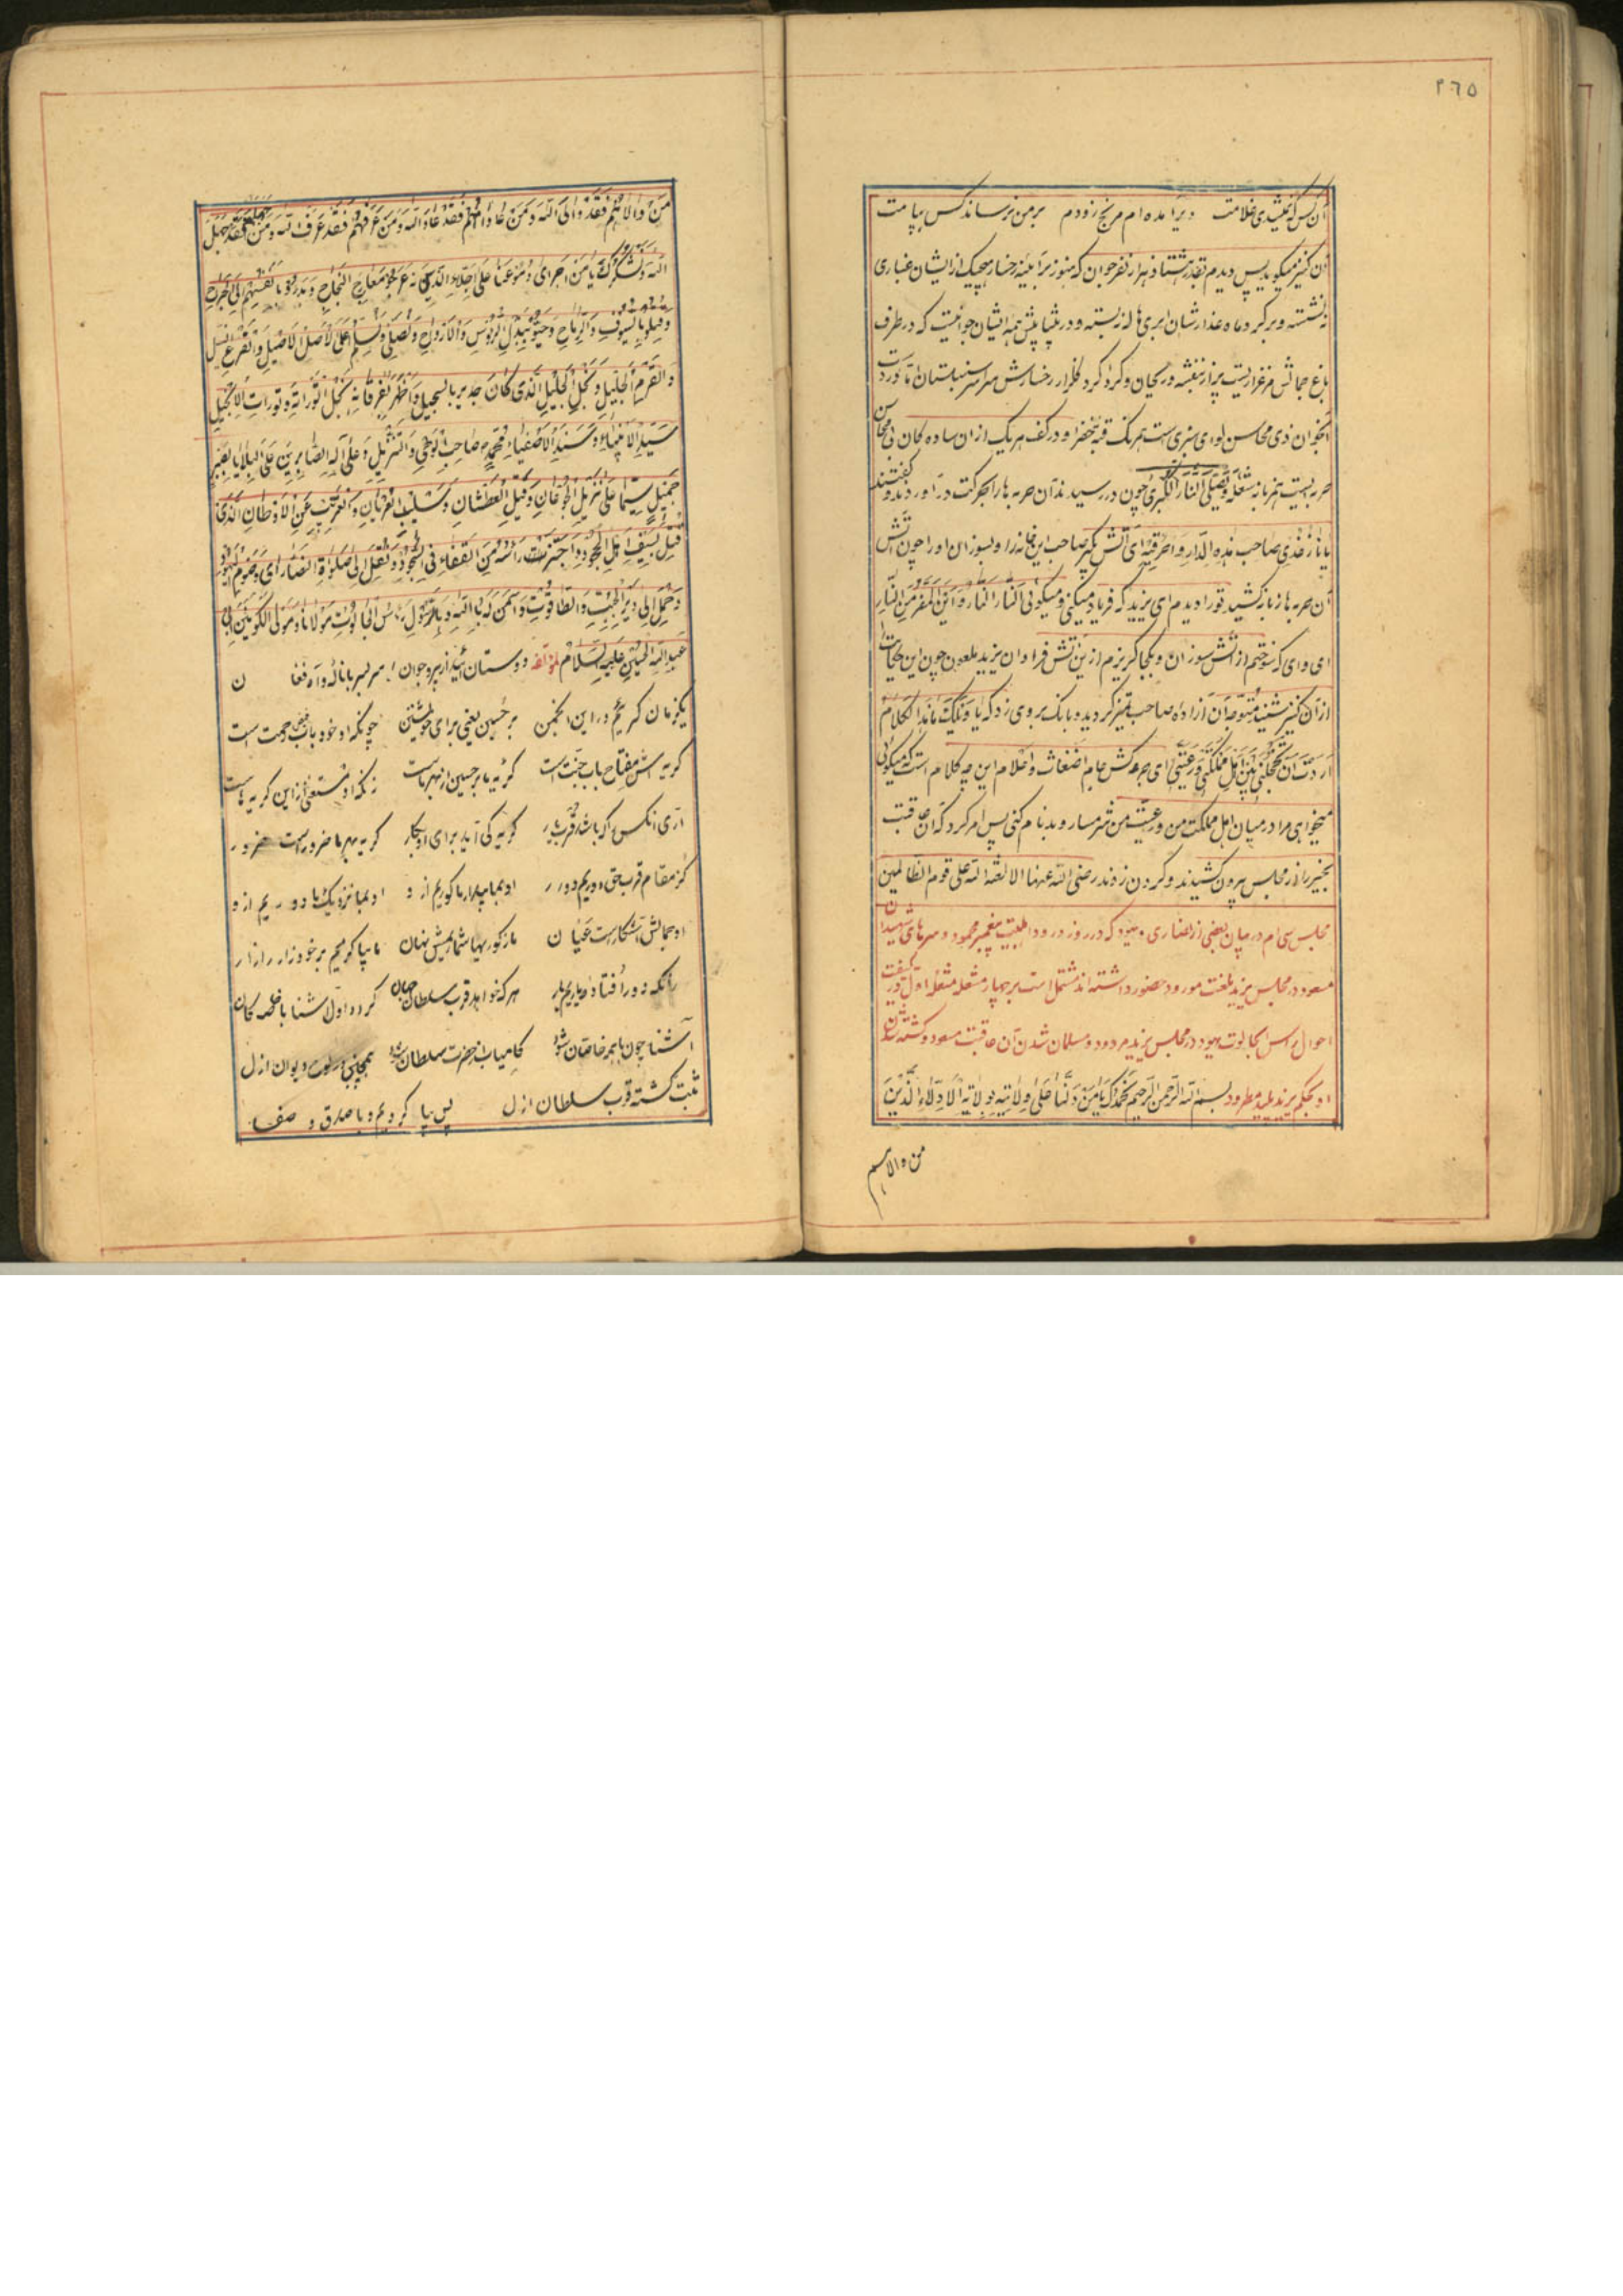 ٢٦٥
آن کس که بکشیدی غلامت دیر آمده ام مرنج زودم بر من نرساند کس پیامت
آن کنیز میگوید پس دیدم بقدر هشتاد هزار نفر جوان که هنوز بر آیینه رخسار هیچیک از ایشان غباری
ننشسته و بر گرد ماه عذارشان ابری هاله نبسته و در پیشاپیش همه ایشان جوانیست که در طرف
باغ جمالش مرغزاریست پر از بنفشه و ریحان و گرداگرد گلزار رخسارش سراسر سنبلستان
آنجوان ذی محاسن لوای سبزی است هم رنگ قبه خضرا و در کف هر یک از آن ساده لبان بی محاسن
حربه ایست هم زبانه شعله و تصلی النار الکبری چون در رسیدند آن حربه ها را بحرکت در آوردند و گفتند
یا نار خذی صاحب هذه الدار و احرقیه ای آتش بگیر صاحب این خانه را و بسوزان او را چون آتش
آن حربه ها زبانه کشید تو را دیدم ای یزید که فریاد میکنی و میگوئی النار النار و این المفر من النار
ای وای که سوختم از آتش سوزان و بکجا گریزم از این آتش فراوان یزید ملعون چون این حکایت را
از آن کنیز شنید متوجه آن آزاده صاحب تمیز گردیده بانگ بر وی زد که یا ویلک ما هذا الکلام
اردت ان تخجلنی بین اهل مملکتی و رعیتی ای جرعه کش جام اضغاث و احلام این چه کلام است که میگوئی
میخواهی مرا در میان اهل مملکت من و رعیت من شرمسار و بدنام کنی پس امر کرد که آن عاقبت
بخیر را از مجلس بیرون کشیدند و گردن زدند رضی الله عنها الا لعنة الله علی قوم الظالمین
مجلس سی ام در بیان بعضی از نصاری و یهود که در روز ورود اهلبیت پیغمبر محمود و سرهای شهیدان
مسعود در مجلس یزید بلعنت مورود حضور داشته اند مشتمل است بر چهار مشعله مشعله اول در کیفیت
احوال راس الجالوت یهود در مجلس یزید مردود و مسلمان شدن آن عاقبت مسعود و کشته شدن
او بحکم یزید پلید مطرود بسم الله الرحمن الرحیم نحمدک یا من دلنا علی ولایته بولایة الادلاء الذین
من والاهم
من والاهم فقد والی الله و من عاداهم فقد عاد الله و من عرفهم فقد عرف الله و من جهلهم فقد جهل
الله و نشکرک یا من اجرای دموعنا علی اجلاء الذین عرجوا معارج النجاح و بدروا بانفسهم الی الجراح
و قتلوا بالسیوف و الرماح و حیوا ببذل الرؤس و الارواح و نصلی و نسلم علی الاصل الاصیل و الفرع النبیل
و القرم الجلیل و نجل الخلیل الذی کان جدیرا بالتبجیل و اظهر بفرقانه نجل التوراته و تورات الانجیل
سید الانبیاء و سند الاصفیاء محمد صاحب الوحی و التنزیل و علی آله الصابرین علی البلایا بصبر
جمیل سیما علی نزیل الجوعان و قتیل العطشان و سلیب العریان و الغریب عن الاوطان الذی
قتل بسیف اهل الجحود و اجتزت راسه من القفاء فی السجود و نقل الی صلواة النصارای و صوم الیهود
و حمل الی دیر الجبت و الطاغوت و آمن له بالله و بالرسول راس الجالوت مولانا و مولی الکونین ابی
عبدالله الحسین علیه السلام لمؤلفه دوستان آئید از پیر و جوان سر بسر با ناله و آه و فغان
یکزمان گریم در این انجمن بر حسین یعنی برای خویشتن چونکه او خود باب فیض رحمت است
گریه اش مفتاح باب جنت است گریه ما بر حسین از بهر ماست زانکه او مستغنی از این گریه هاست
آری آنکس را که باشد قرب یار گریه کی آید برای او بکار گریه بهر ما ضرور است ضرور
کز مقام قرب حق دوریم دور او بما پیدا و ما کوریم از او او بما نزدیک ما دوریم از او
او جمالش آشکار است عیان ما ز کوریها شماریمش نهان ما بیا گرییم بر خود زار زار
زانکه دور افتاده ایم از یار هر که خواهد قرب سلطان جهان گردد اول آشنا با خاصگان
آشنا چون با همه خاصان شود کامیاب از حضرت سلطان شود همچنین در لوح دیوان ازل
ثبت گشته قرب سلطان ازل پس بیا گردیم ما با صدق و صفا